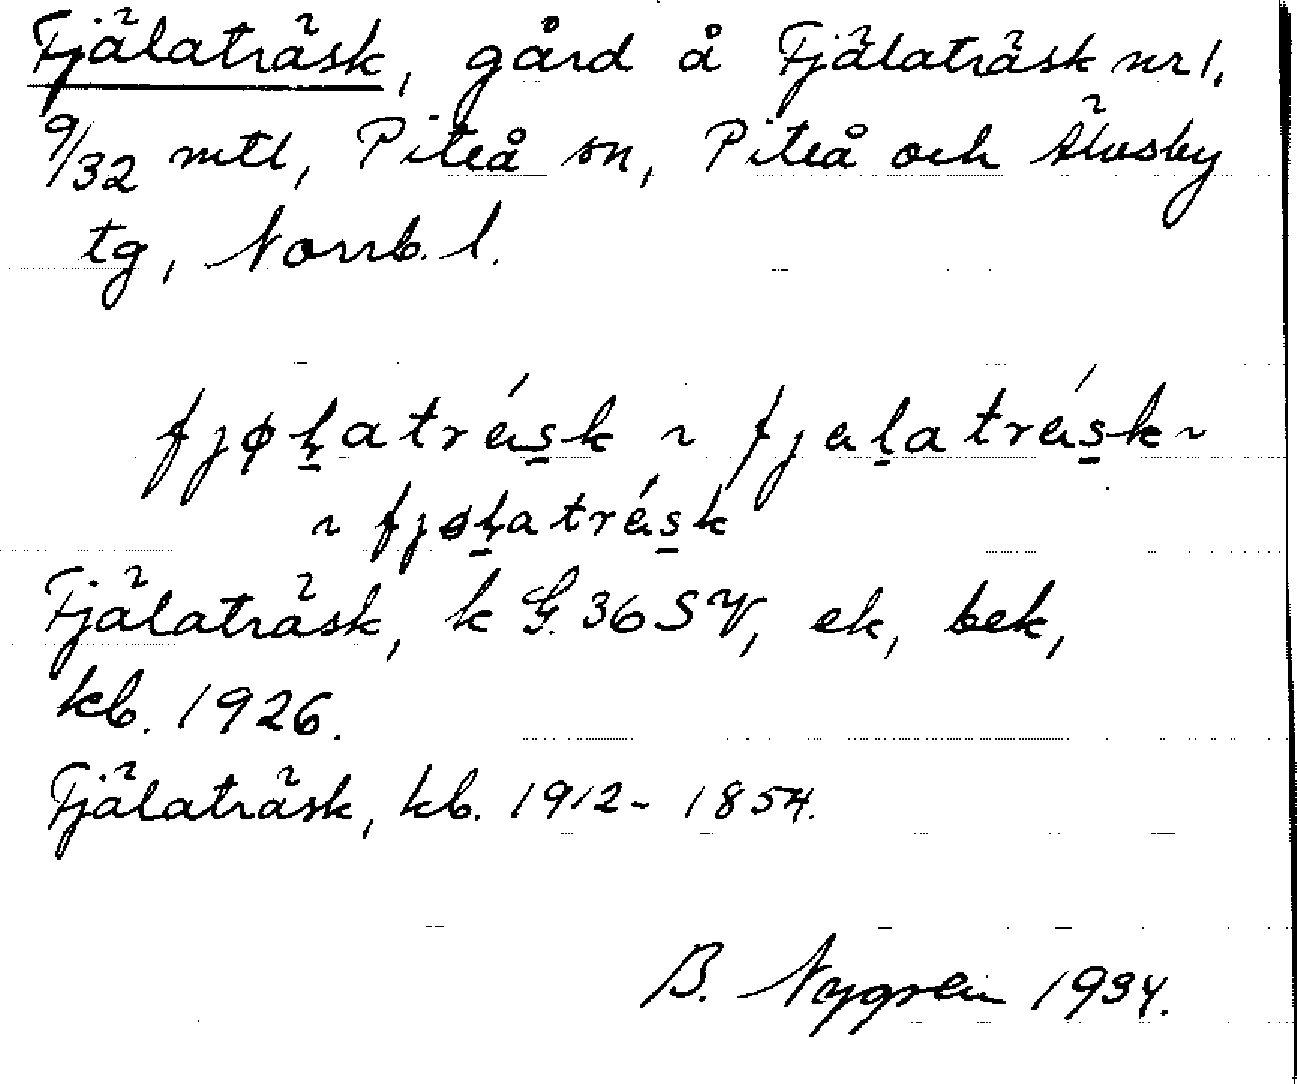 Fjälaträsk, gård å Fjälaträsk nr 1,
9/32 mtl, Piteå sn, Piteå och Älvsby
tg, Norrb. l.
fjøḷatrǽs̱k ~ fjæḷatrǽs̱k ~
~ fjøḷatrǽs̱k
Fjälaträsk, k G. 36 SV, ek, bek,
kb. 1926.
Fjälaträsk, kb. 1912 - 1854.
B. Nygren 1934.